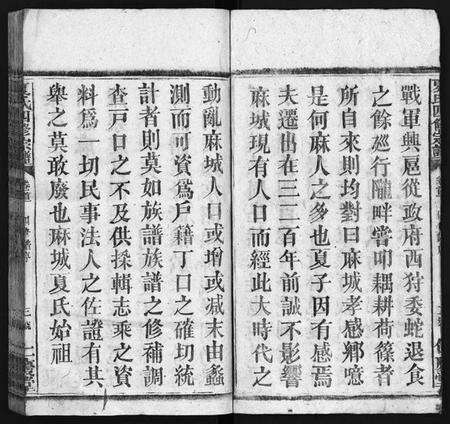 戰軍興扈從政府西狩委蛇退食
之餘巡行隴畔嘗叩耦耕荷篠者
所自來則均對曰麻城孝感鄉噫
是何麻人之多也夏子因有感焉
夫遷出在三二百年前誠不影響
麻城現有人口而經此大時代之
動亂麻城人口或增或減末由蠡
測而可資爲戶籍丁口之確切統
計者則莫如族譜族譜之修補調
查戶口之不及供採輯志乘之資
料爲一切民事法人之佐證有其
舉之莫敢廢也麻城夏氏始祖
夏氏四修宗譜